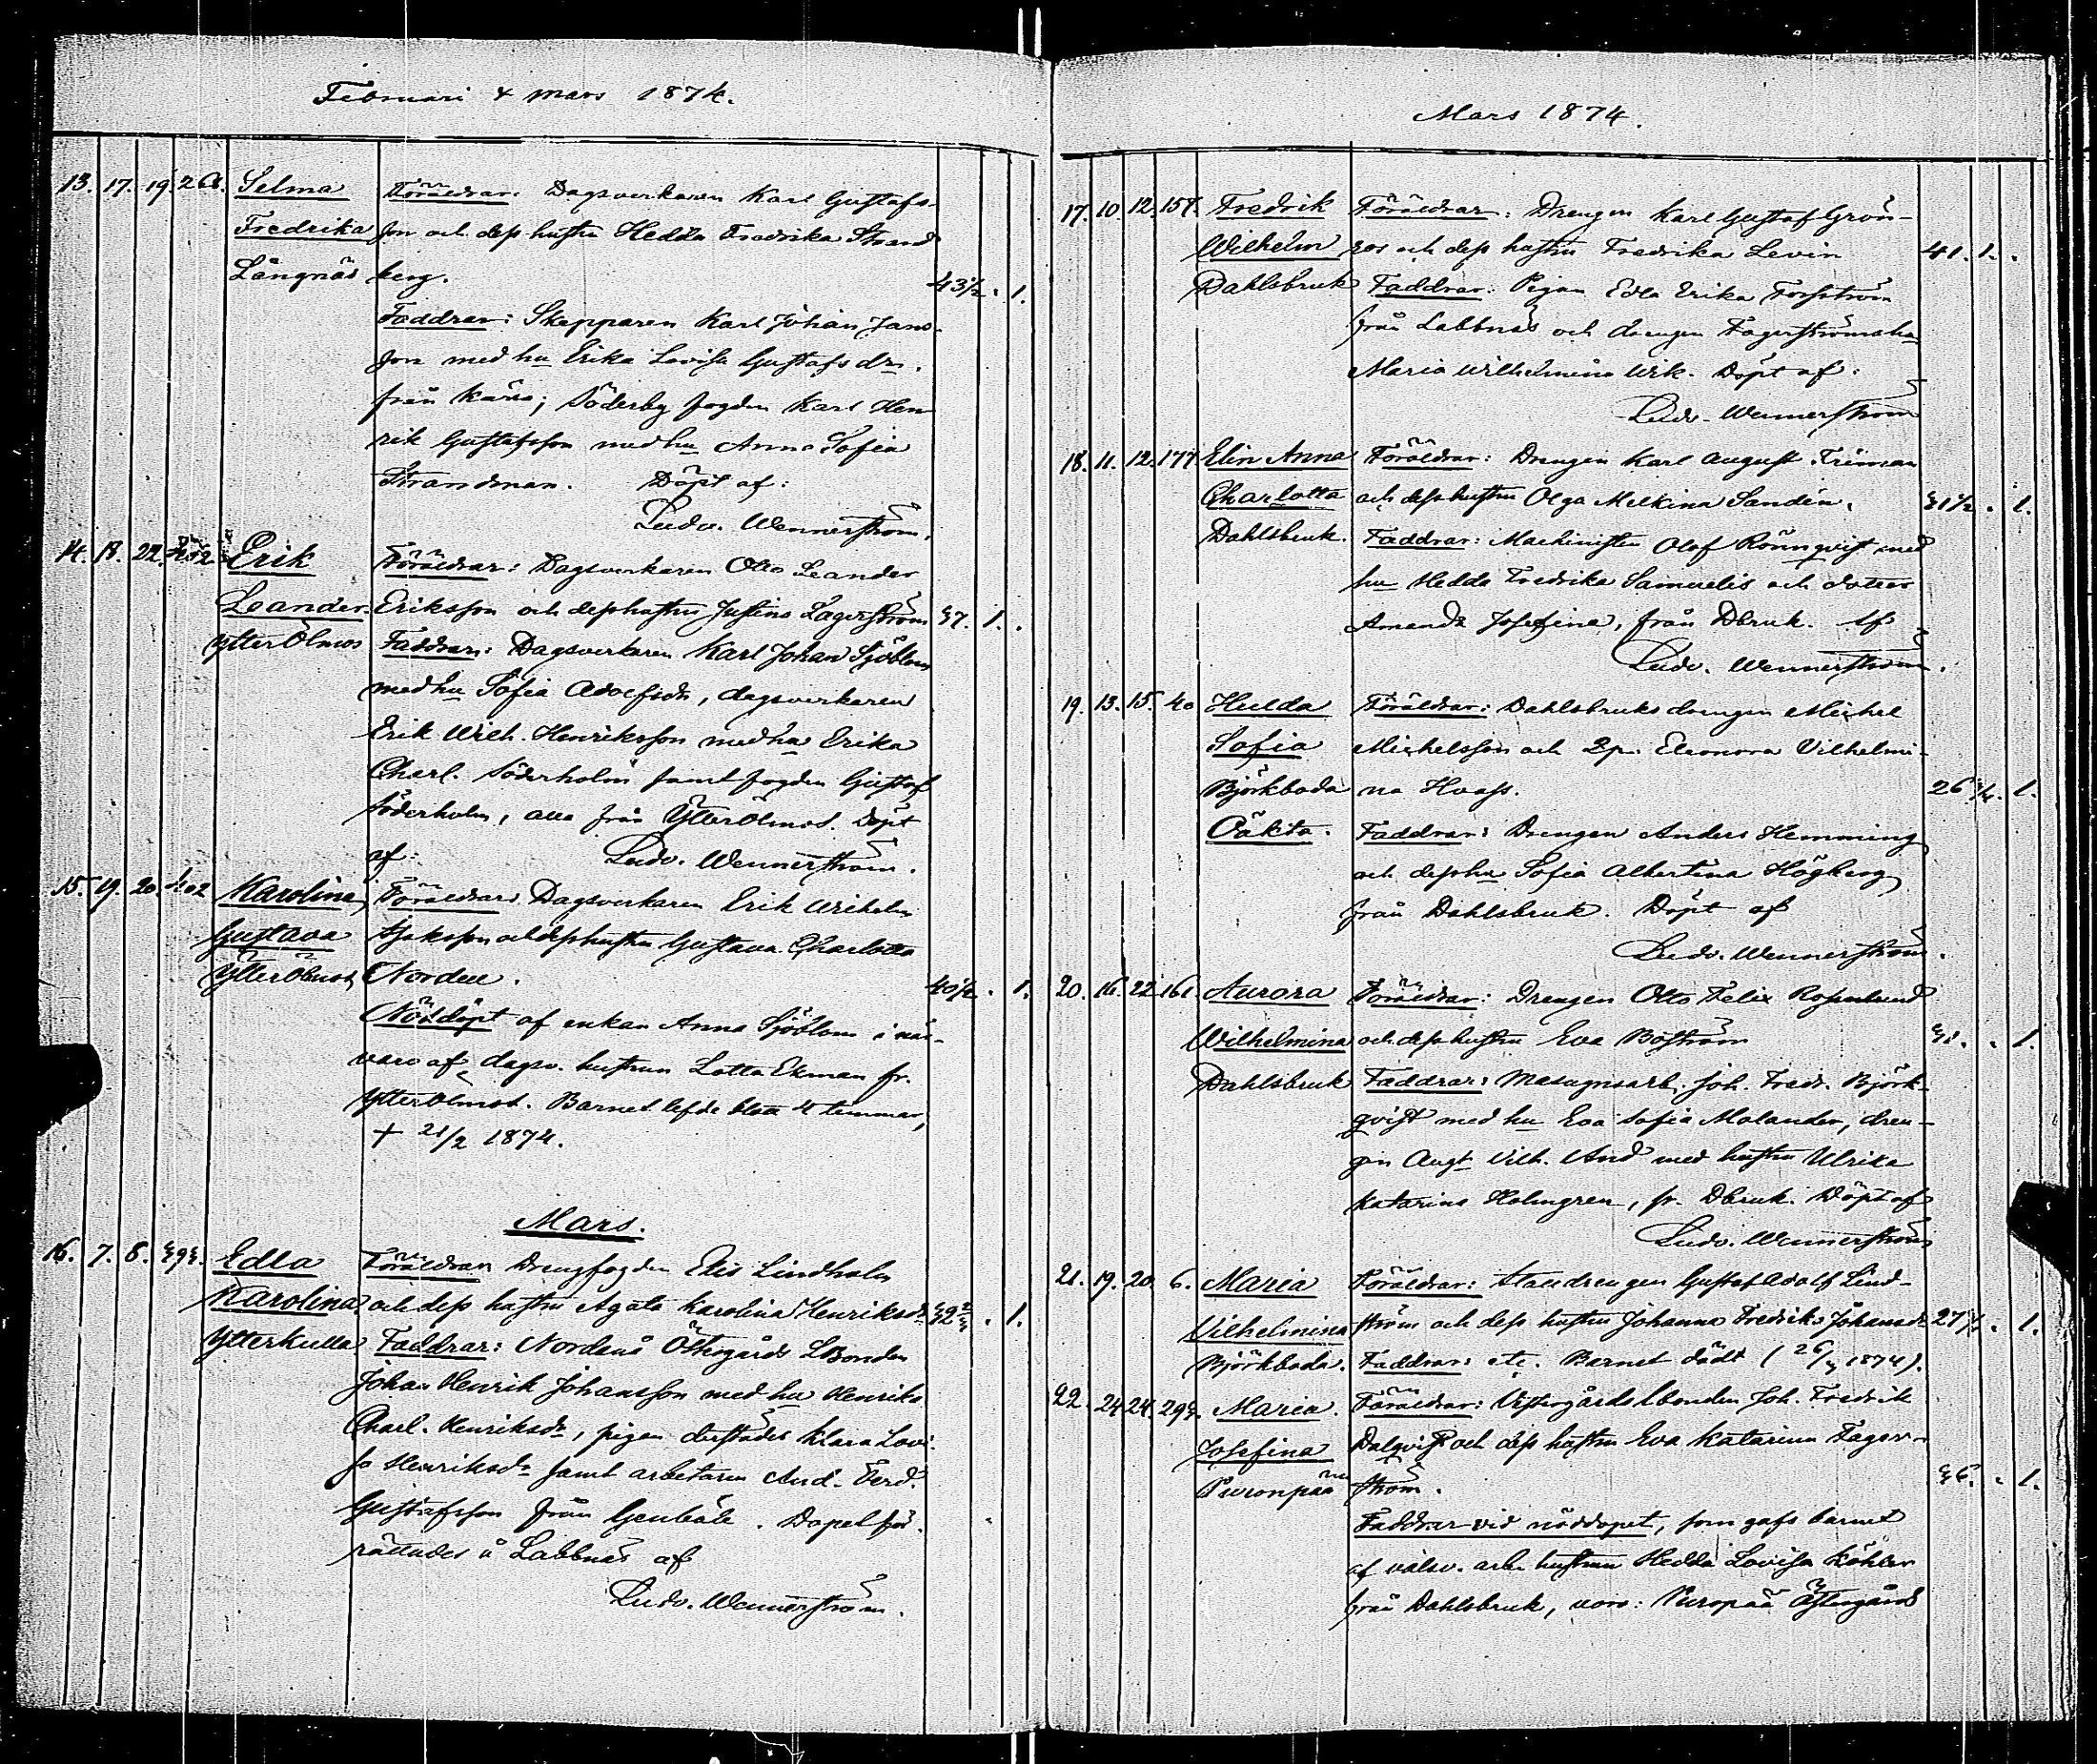 Februari & mars 1874.
13. 17. 19. Selma Föräldrar: Dagsverkaren Karl Gustafs-
Fredrika son och dess hustru Hedda Fredrika Strand
Långnäs berg. 43½. 1.
Faddrar: Skepparen Karl Johan Jans-
son med hu Erika Lovisa Gustafsdr.
från Kärra; Söderby fogden Karl Hen
rik Gustafsson med hu Anna Sofia
Strandman. Döpt af:
Ludv. Wennerström.
14. 18. 22. 202 Erik Föräldrar: Dagsverkaren Otto Leander
Leander. Eriksson och dess hustru Justina Lagerström 37. 1.
Ytterölmos Faddrar: Dagsverkaren Karl Johan Sjöblom
med hu Sofia Adolfsdr, dagsverkaren
Erik Wilh. Henriksson med hu Erika
Charl. Söderholm samt fogden Gustaf
Söderholm, alla från Ytterölmos. Döpt
af: Ludv. Wennerström.
15. 19. 20. 202 Karolina Föräldrar: Dagsverkaren Erik Wilhelm
Gustava Isaksson och dess hustru Gustava Charlotta
Ytterölmos Nordell. 40½. 1.
Nöddöpt af enkan Anna Sjöblom i när-
varo af dagsv. hustrun Lotta Ekman fr.
Ytterölmos. Barnet lefde blott 4 timmar,
+ 21/2 1874.
Mars.
16. 7. 8. Edla Föräldrar Drengfogden Elis Lindholm
Karolina och dess hustru Agata Karolina Henriksdr 1.
Ytterkulla Faddrar: Nordanå Östergårds LBonden
Johan Henrik Johansson med hu Henrika
Charl. Henriksdr, pigan derstädes Klara Lovi-
sa Henriksdr samt arbetaren And. Ferd.
Gustafsson från Genböle. Dopet för-
rättades å Labbnäs af
Ludv. Wennerström.
Mars 1874.
17. 10. 12. 157. Fredrik Föräldrar: Drengen Karl Gustaf Grön-
Wilhelm ros och dess hustru Fredrika Levin 41. 1.
Dahlsbruk Faddrar: Pigan Edla Erika Forsström
från Labbnäs och drengen Fagerströms hu
Maria Wilhelmina Wik. Döpt af:
Ludv. Wennerström
18. 11. 12. 177 Elin Anna Föräldrar: Drengen Karl August Friman
Charlotta och dess hustru Olga Melkina Sandin. 31½. 1.
Dahlsbruk. Faddrar: Machinisten Olof Rönnqvist med
hu Hedda Fredrika Samuelis och dotter
Amanda Josefina, från Dbruk. Af
Ludv. Wennerström.
19. 13. 15. 40 Hulda Föräldrar: Dahlsbruks drengen Michel
Sofia Michelsson och Qp. Eleonora Vilhelmi-
Björkboda na Haass. 26¾. 1.
Oäkta. Faddrar: Drengen Anders Hemming
och dess hu Sofia Albertina Högberg
från Dahlsbruk. Döpt af
Ludv. Wennerström.
20. 16. 22. 161. Aurora Föräldrar: Drengen Otto Felix Rosenlund
Wilhelmina och dess hustru Eva Boström 1.
Dahlsbruk Faddrar: Masugnsarb. Joh. Fredr. Björk-
qvist med hu Eva Sofia Molander, dren-
gen Augt Vilh. And med hustru Ulrika
Katarina Holmgren, fr. Dbruk. Döpt af
Ludv. Wennerström
21. 19. 20. 6. Maria Föräldrar: Staldrengen Gustaf Adolf Lind-
Vilhelmina ström och dess hustru Johanna Fredrika Johansdr 1.
Björkboda. Faddrar: etc. Barnet dödt (1874).
22. 24. 24. Maria Föräldrar: Vestergårds lbonden Joh. Fredrik
Josefina Dalqvist och dess hustru Eva Katarina Fager-
Puronpää ström. 36. 1.
Faddrar vid nöddopet, som gafs barnet
af valsv. arb. hustrun Hedda Lovisa Köhler
från Dahlsbruk, voro: Puropää Östergårds